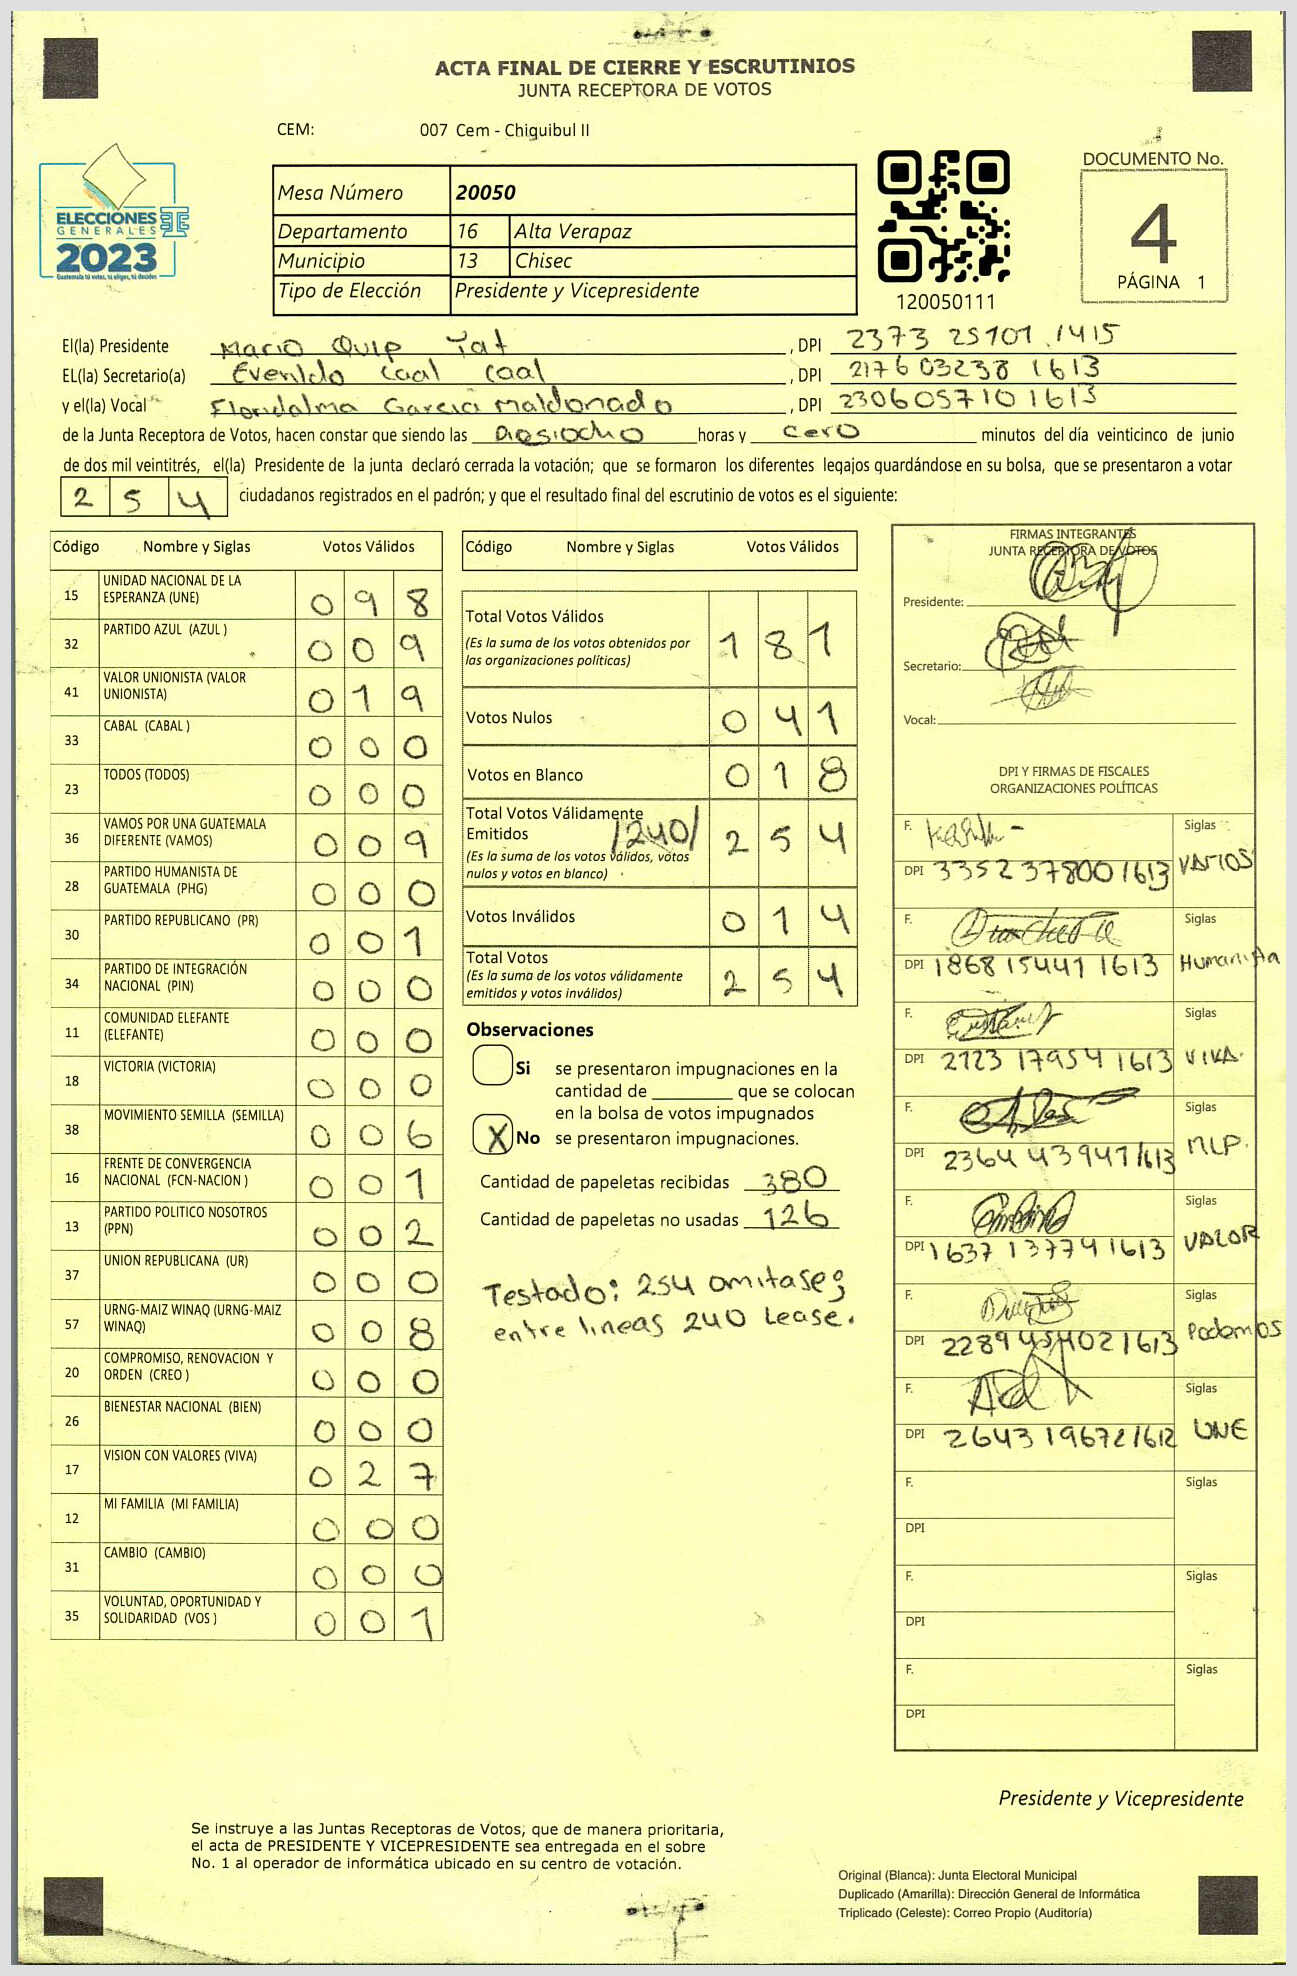 ACTA FINAL DE CIERRE Y ESCRUTINIOS
JUNTA RECEPTORA DE VOTOS
CEM: 007 Cem - Chiquibul II
ELECCIONES
GENERALES
2023
Guatemala tú votas, tú eliges, tú decides
Mesa Número 20050
Departamento 16 Alta Verapaz
Municipio 13 Chisec
Tipo de Elección Presidente y Vicepresidente
120050111
DOCUMENTO No.
4
PÁGINA 1
El(la) Presidente Mario Quip Tat , DPI 2373 25101 1415
EL(la) Secretario(a) Evenildo Caal Caal , DPI 2176 03238 1613
y el(la) Vocal Floridalma Garcia Maldonado , DPI 2306057101613
de la Junta Receptora de Votos, hacen constar que siendo las Diesiocho horas y cero minutos del día veinticinco de junio
de dos mil veintitrés, el(la) Presidente de la junta declaró cerrada la votación; que se formaron los diferentes legajos guardándose en su bolsa, que se presentaron a votar
254 ciudadanos registrados en el padrón; y que el resultado final del escrutinio de votos es el siguiente:
Código Nombre y Siglas Votos Válidos
15 UNIDAD NACIONAL DE LA ESPERANZA (UNE) 098
32 PARTIDO AZUL (AZUL ) 009
41 VALOR UNIONISTA (VALOR UNIONISTA) 019
33 CABAL (CABAL ) 000
23 TODOS (TODOS) 000
36 VAMOS POR UNA GUATEMALA DIFERENTE (VAMOS) 009
28 PARTIDO HUMANISTA DE GUATEMALA (PHG) 000
30 PARTIDO REPUBLICANO (PR) 001
34 PARTIDO DE INTEGRACIÓN NACIONAL (PIN) 000
11 COMUNIDAD ELEFANTE (ELEFANTE) 000
18 VICTORIA (VICTORIA) 000
38 MOVIMIENTO SEMILLA (SEMILLA) 006
16 FRENTE DE CONVERGENCIA NACIONAL (FCN-NACION ) 001
13 PARTIDO POLITICO NOSOTROS (PPN) 002
37 UNION REPUBLICANA (UR) 000
57 URNG-MAIZ WINAQ (URNG-MAIZ WINAQ) 008
20 COMPROMISO, RENOVACION Y ORDEN (CREO ) 000
26 BIENESTAR NACIONAL (BIEN) 000
17 VISION CON VALORES (VIVA) 027
12 MI FAMILIA (MI FAMILIA) 000
31 CAMBIO (CAMBIO) 000
35 VOLUNTAD, OPORTUNIDAD Y SOLIDARIDAD (VOS ) 001
Código Nombre y Siglas Votos Válidos
Total Votos Válidos 181
(Es la suma de los votos obtenidos por
las organizaciones políticas)
Votos Nulos 041
Votos en Blanco 018
Total Votos Válidamente
Emitidos /240/ 254
(Es la suma de los votos válidos, votos
nulos y votos en blanco)
Votos Inválidos 014
Total Votos 254
(Es la suma de los votos válidamente
emitidos y votos inválidos)
Observaciones
Si se presentaron impugnaciones en la
cantidad de que se colocan
en la bolsa de votos impugnados
X No se presentaron impugnaciones.
Cantidad de papeletas recibidas 380
Cantidad de papeletas no usadas 126
Testado: 254 omitase;
entre lineas 240 Lease.
FIRMAS INTEGRANTES
JUNTA RECEPTORA DE VOTOS
Presidente:
Secretario:
Vocal:
DPI Y FIRMAS DE FISCALES
ORGANIZACIONES POLÍTICAS
F. Siglas
DPI 3352 37800 1613 VAMOS
F. Siglas
DPI 1868 15441 1613 Humanista
F. Siglas
DPI 2123 17954 1613 VIVA.
F. Siglas
DPI 2364 43941 1613 MLP.
F. Siglas
DPI 1637 13774 1613 VALOR
F. Siglas
DPI Podemos
F. Siglas
DPI 2643 19672 1612 UNE
F. Siglas
DPI
F. Siglas
DPI
F. Siglas
DPI
Presidente y Vicepresidente
Se instruye a las Juntas Receptoras de Votos, que de manera prioritaria,
el acta de PRESIDENTE Y VICEPRESIDENTE sea entregada en el sobre
No. 1 al operador de informática ubicado en su centro de votación.
Original (Blanca): Junta Electoral Municipal
Duplicado (Amarilla): Dirección General de Informática
Triplicado (Celeste): Correo Propio (Auditoría)